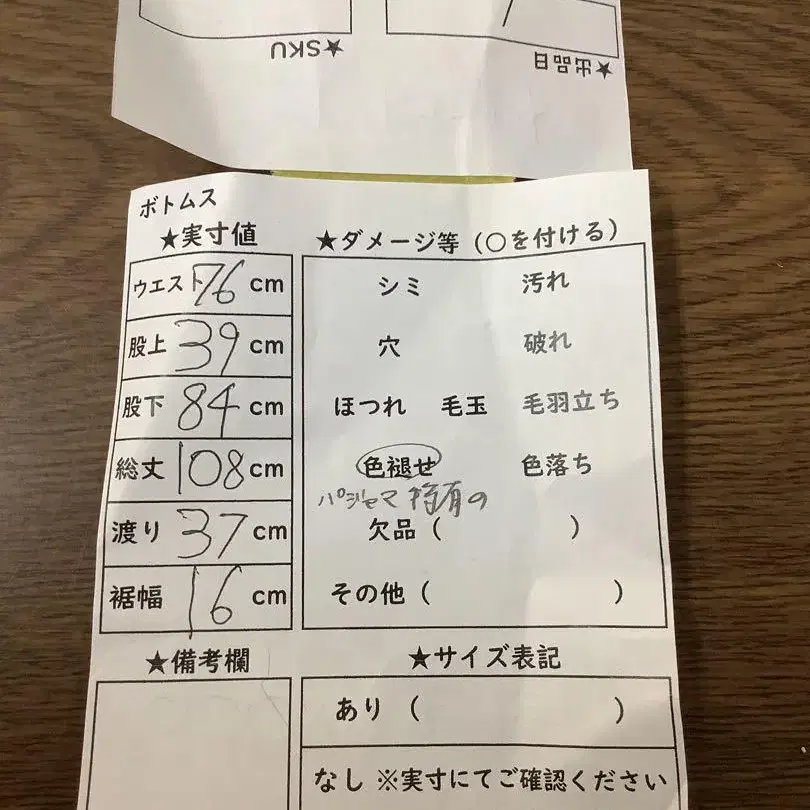 ★SKU
★出品日
ボトムス
★実寸値
ウエスト 76 cm
股上 39 cm
股下 84 cm
総丈 108 cm
渡り 37 cm
裾幅 16 cm
★備考欄
★ダメージ等(〇を付ける)
シミ 汚れ
穴 破れ
ほつれ 毛玉 毛羽立ち
色褪せ 色落ち
パジャマ 特有の
欠品( )
その他( )
★サイズ表記
あり( )
なし ※実寸にてご確認ください